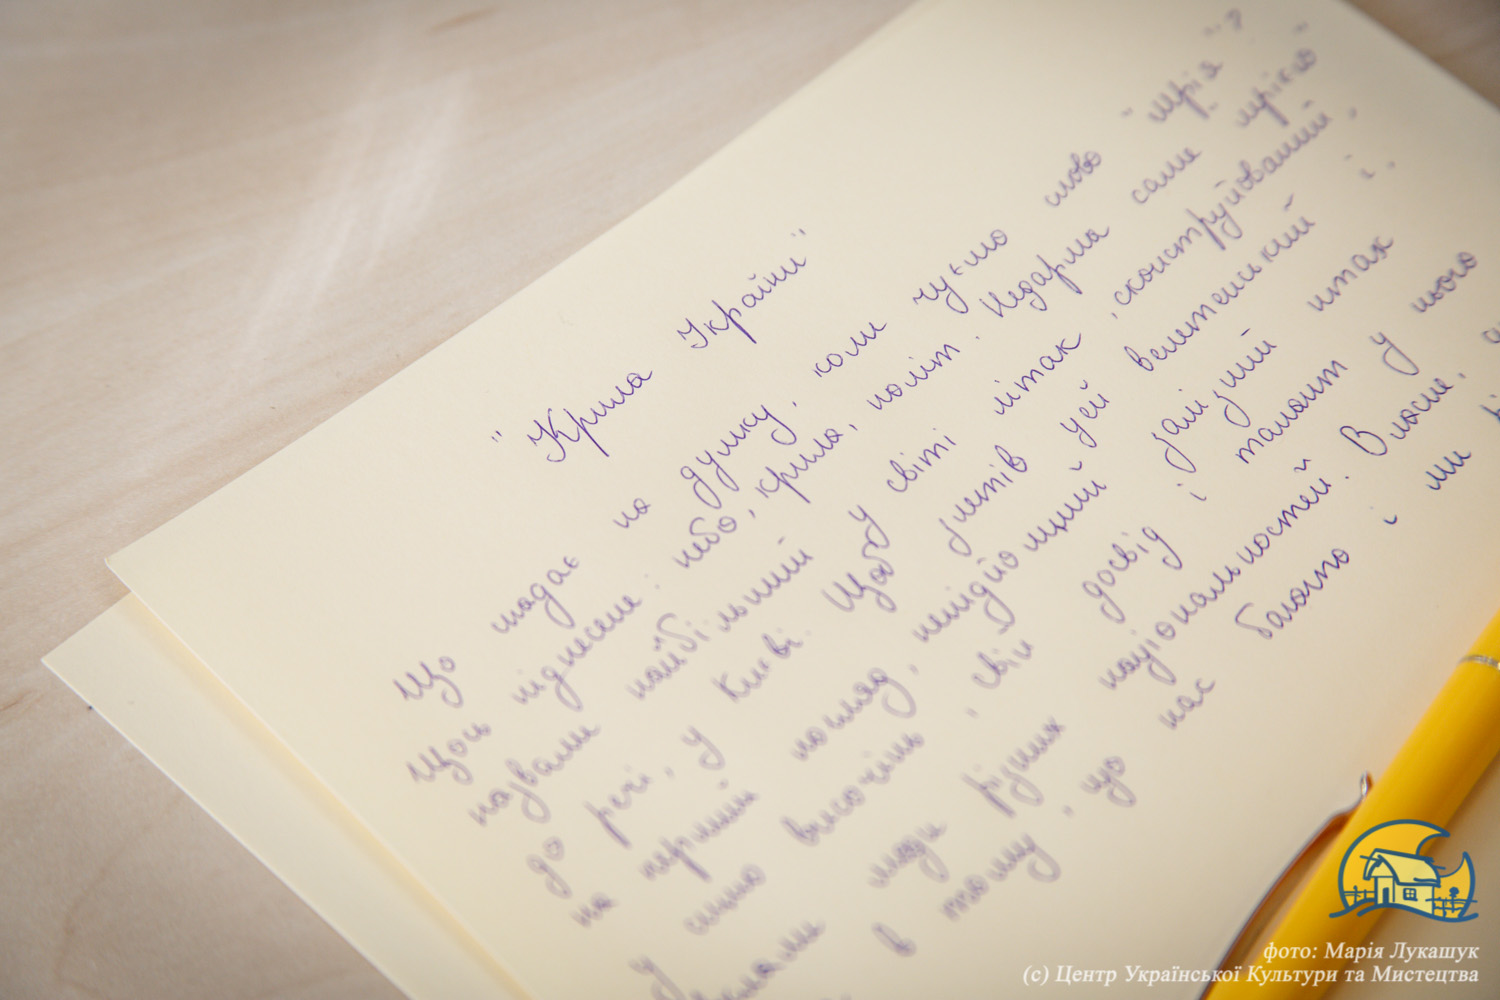 "Крила України"
Що спадає на думку, коли чуємо слово "мрія"?
Щось піднесене: небо, крила, політ. Недарма саме "мрією"
назвали найбільший у світі літак, сконструйований,
до речі, у Києві. Щоб злетів цей велетенський і,
на перший погляд, непідйомний залізний птах
у синю височінь, свій досвід і талант у нього
люди різних національностей. Власне,
в тому, що нас багато і ми
фото: Марія Лукашук
(с) Центр Української Культури та Мистецтва